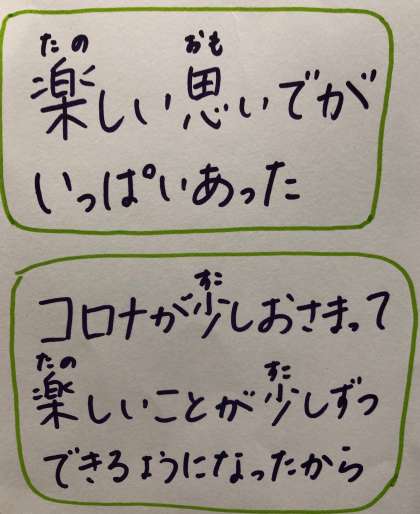 たの おも
楽しい思いでが
いっぱいあった
すこ
コロナが少しおさまって
たの すこ
楽しいことが少しずつ
できるようになったから